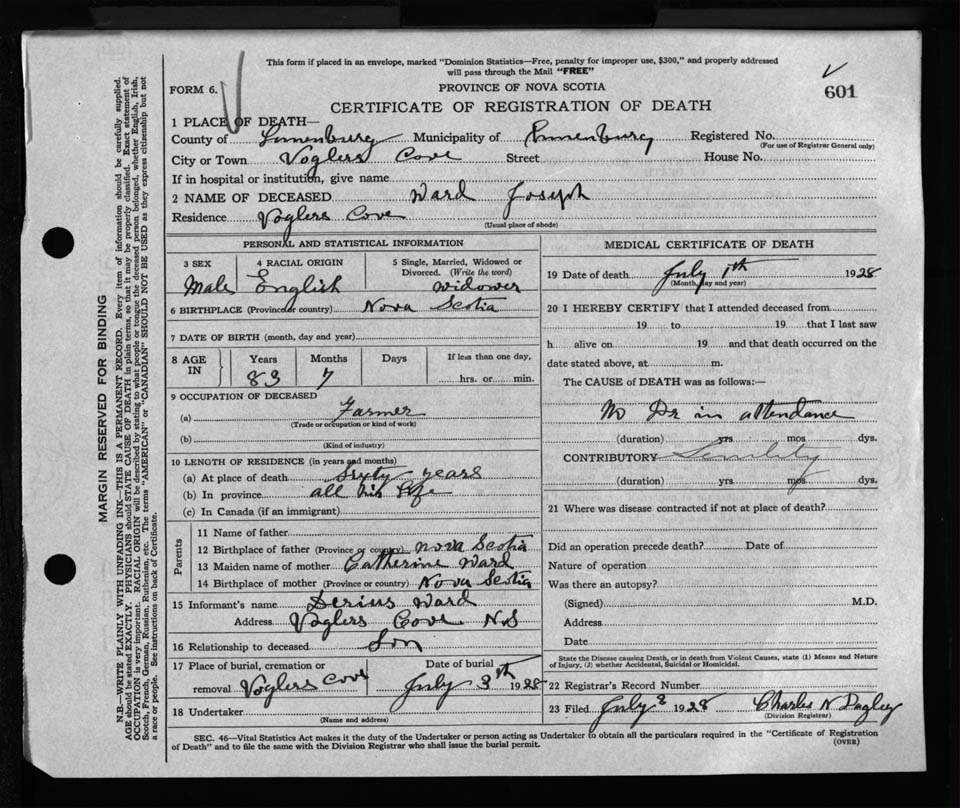 This form if placed in an envelope, marked "Dominion Statistics—Free, penalty for improper use, $300," and properly addressed
will pass through the Mail "FREE"
FORM 6.
PROVINCE OF NOVA SCOTIA
601
CERTIFICATE OF REGISTRATION OF DEATH
1 PLACE OF DEATH—
County of Lunenburg Municipality of Lunenburg Registered No.
(For use of Registrar General only)
City or Town Voglers Cove Street House No.
If in hospital or institution, give name
2 NAME OF DECEASED Ward Joseph
Residence Voglers Cove
(Usual place of abode)
MARGIN RESERVED FOR BINDING
N.B.—WRITE PLAINLY WITH UNFADING INK—THIS IS A PERMANENT RECORD. Every item of information should be carefully supplied.
AGE should be stated EXACTLY. PHYSICIANS should STATE CAUSE OF DEATH in plain terms, so that it may be properly classified. Exact statement of
OCCUPATION is very important. RACIAL ORIGIN will be described by stating to what people or tongue the deceased person belonged, whether English, Irish,
Scotch, French, German, Russian, Ruthenian, etc. The terms "AMERICAN" or "CANADIAN" SHOULD NOT BE USED as they express citizenship but not
a race or people. See instructions on back of Certificate.
PERSONAL AND STATISTICAL INFORMATION
3 SEX 4 RACIAL ORIGIN 5 Single, Married, Widowed or
Divorced. (Write the word)
Male English widower
6 BIRTHPLACE (Province or country) Nova Scotia
7 DATE OF BIRTH (month, day and year)
8 AGE IN Years Months Days If less than one day,
83 7 hrs. or min.
9 OCCUPATION OF DECEASED
(a) Farmer
(Trade or occupation or kind of work)
(b)
(Kind of industry)
10 LENGTH OF RESIDENCE (in years and months)
(a) At place of death sixty years
(b) In province all his life
(c) In Canada (if an immigrant)
Parents
11 Name of father
12 Birthplace of father (Province or country) Nova Scotia
13 Maiden name of mother Catherine Ward
14 Birthplace of mother (Province or country) Nova Scotia
15 Informant's name Ward
Address Voglers Cove N.S
16 Relationship to deceased Son
17 Place of burial, cremation or Date of burial
removal Voglers Cove July 3th 1928
18 Undertaker
(Name and address)
MEDICAL CERTIFICATE OF DEATH
19 Date of death July 1th 1928
(Month, day and year)
20 I HEREBY CERTIFY that I attended deceased from
19 to 19 that I last saw
h alive on 19 and that death occurred on the
date stated above, at m.
The CAUSE of DEATH was as follows:—
No Dr in attendance
(duration) yrs mos dys.
CONTRIBUTORY Senility
(duration) yrs mos dys.
21 Where was disease contracted if not at place of death?
Did an operation precede death? Date of
Nature of operation
Was there an autopsy?
(Signed) M.D.
Address
Date
State the Disease causing Death, or in death from Violent Causes, state (1) Means and Nature
of Injury, (2) whether Accidental, Suicidal or Homicidal.
22 Registrar's Record Number
23 Filed July 3 1928 Charles N
(Division Registrar)
SEC. 46—Vital Statistics Act makes it the duty of the Undertaker or person acting as Undertaker to obtain all the particulars required in the "Certificate of Registration
of Death" and to file the same with the Division Registrar who shall issue the burial permit.
(OVER)